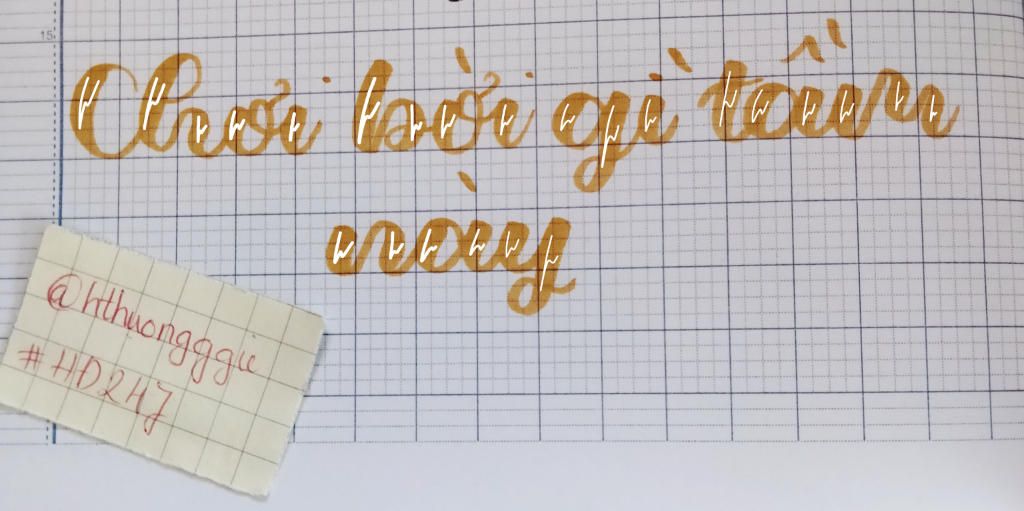 15
Chơi bời gì tầm
này
@hthuongggie
#HD2HJ